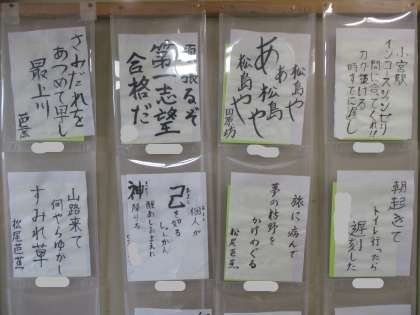 小宮駅
間に合ってくれ!!
カク基ける
時すでに遅し
松島や
ああ松島や
松島や
田原坊
頑張るぞ
第一志望
合格だ
さみだれを
あつめて早し
最上川
芭蕉
朝起きて
トイレ行ったら
遅刻した
旅に病んで
夢は枯野を
かけめぐる
松尾芭蕉
個人が
己を知る
神
山路来て
何やらゆかし
すみれ草
松尾芭蕉